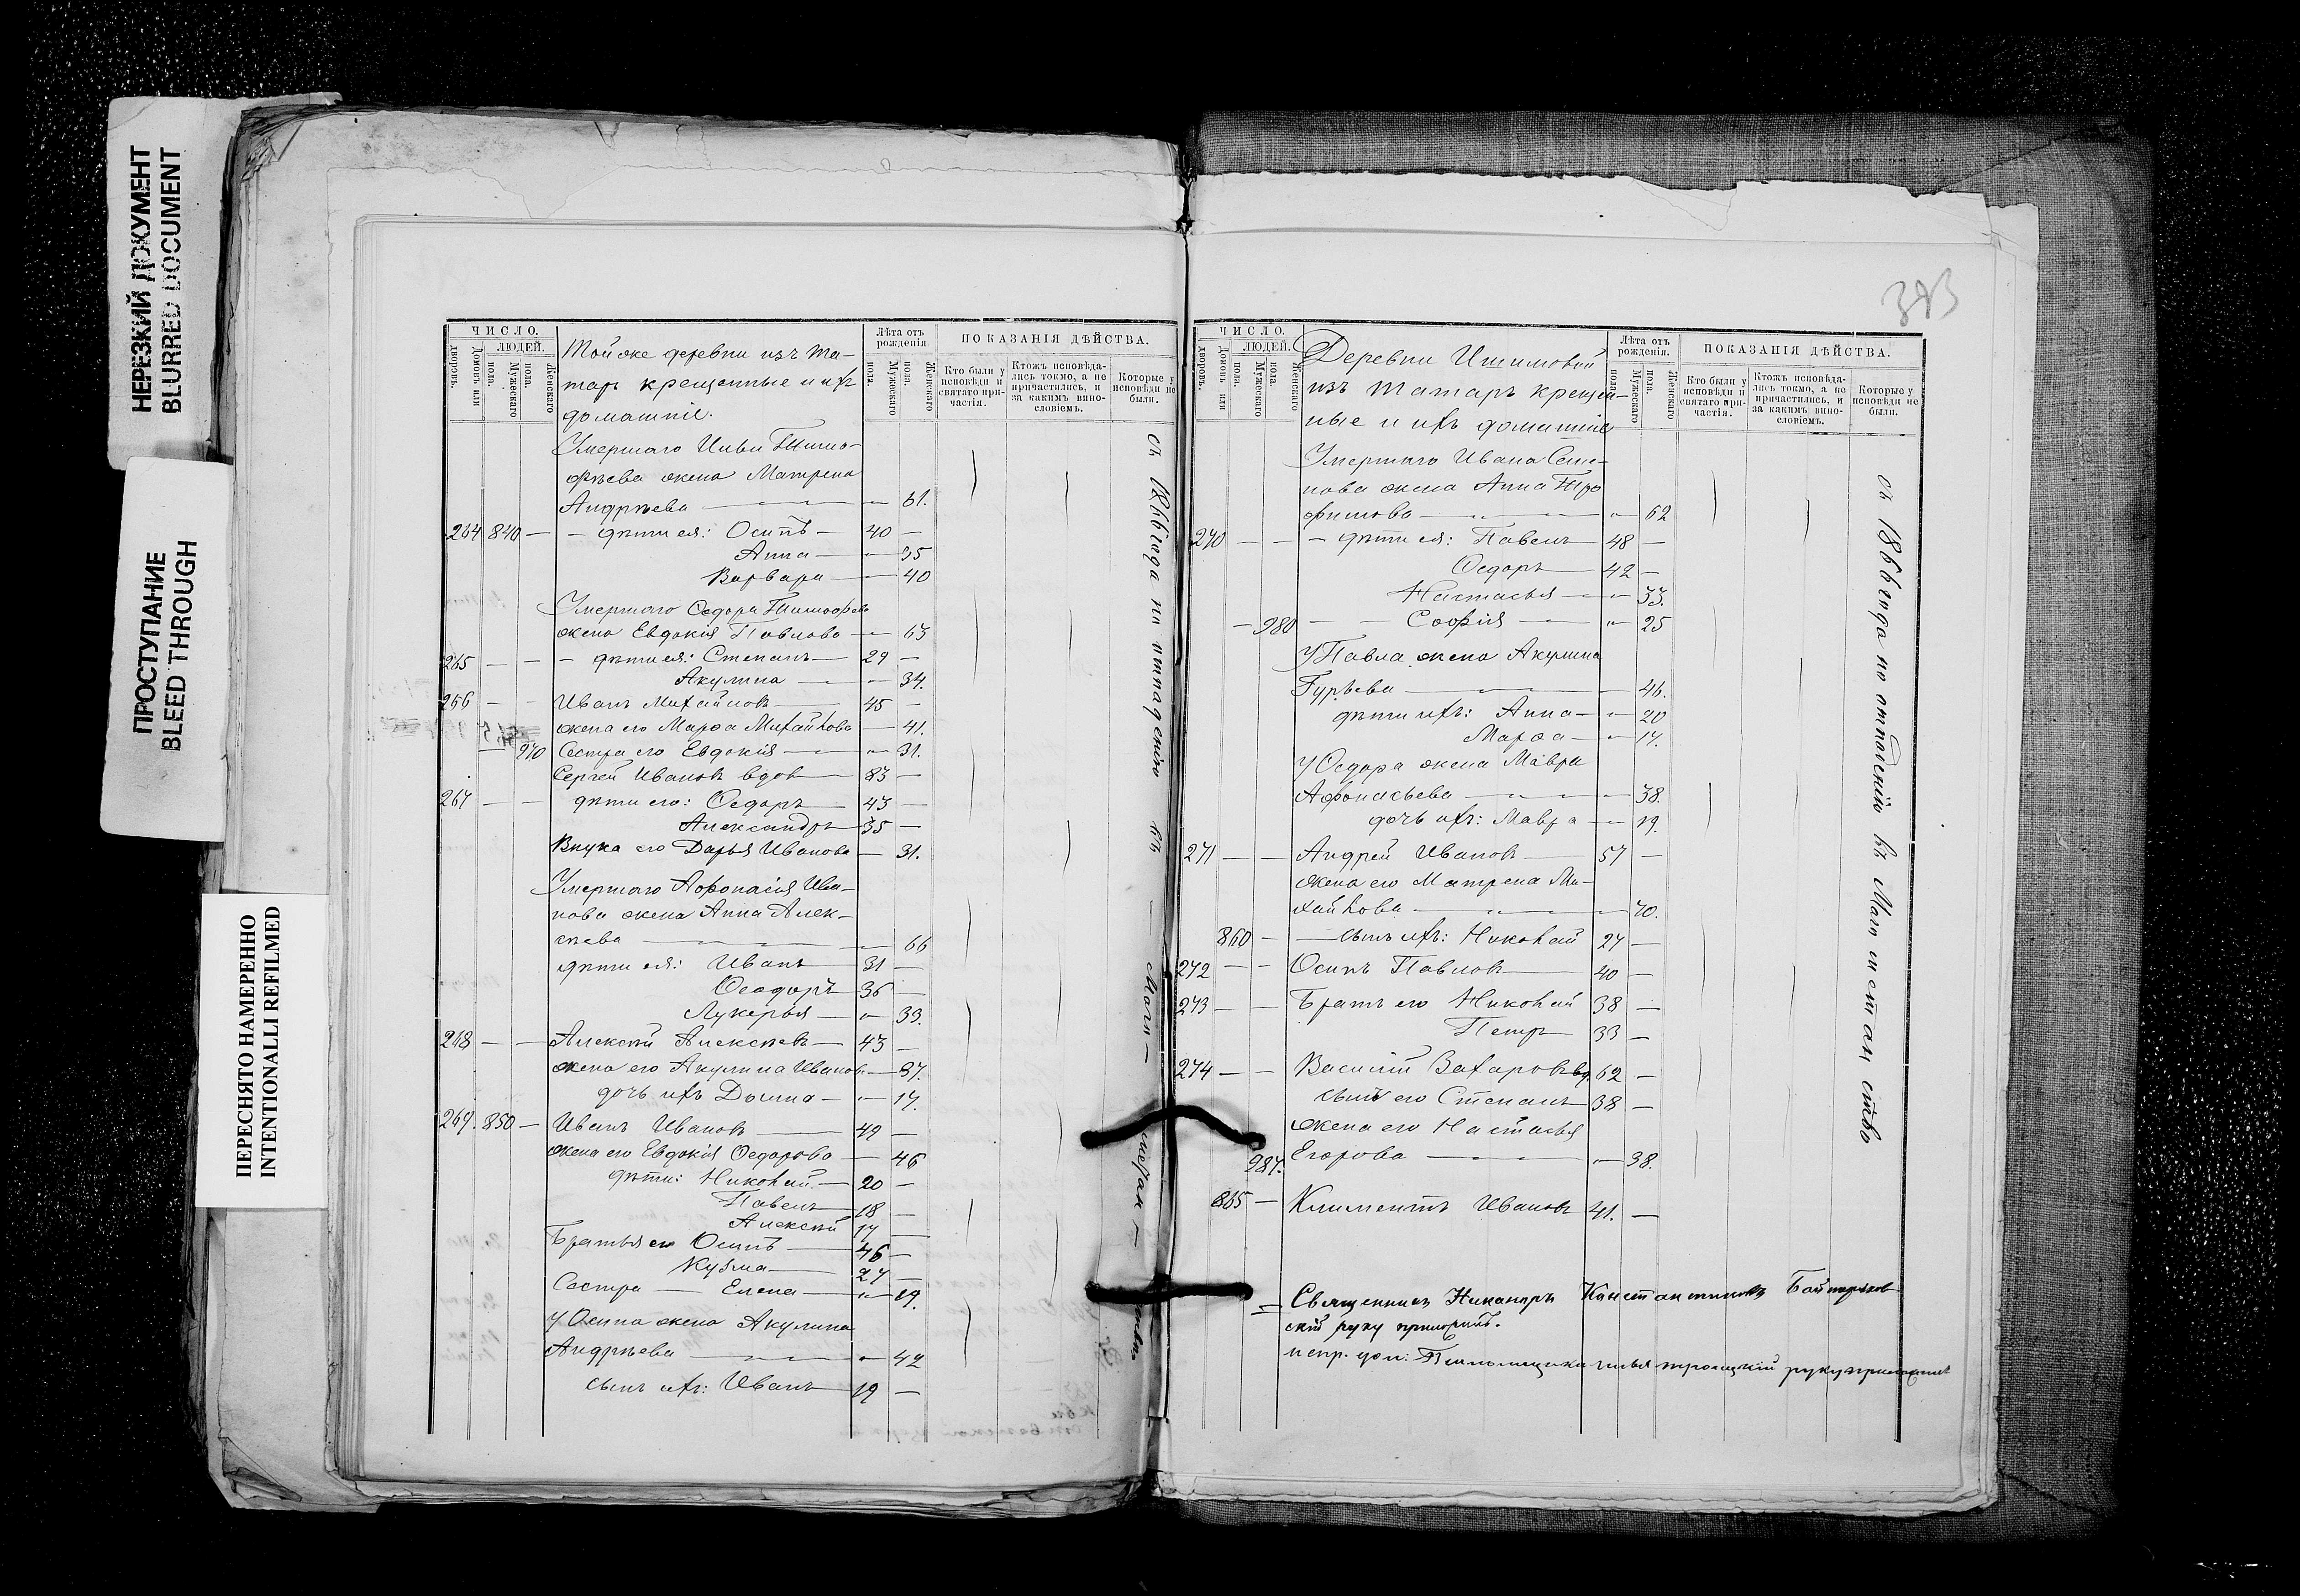 НЕРЕЗКИЙ ДОКУМЕНТ
BLURRED DOCUMENT
ПРОСТУПАНИЕ
BLEED THROUGH
ПЕРЕСНЯТО НАМЕРЕННО
INTENTIONALLI REFILMED
ЧИСЛО.
ЛЮДЕЙ.
дворовъ.
Домовъ или
пола. Мужескаго
пола. Женскаго
Лѣта отъ рожденія
пола. Мужескаго
пола. Женскаго
ПОКАЗАНІЯ ДѢЙСТВА.
Кто были у исповѣди и святаго причастія.
Ктожъ исповѣдались токмо, а не причастились, и за какимъ винословіемъ.
Которые у исповѣди не были.
Той же деревни изъ та-
таръ крещенные и ихъ
домашніе.
Умершаго Ильи Тимо-
фѣева жена Матрена
Андрѣева — 61.
264 840 — дѣти ея: Осипъ — 40 —
Анна — 35
Варвара — 40
Умершаго Ѳедора Тимоѳѣев
жена Евдокія Павлова — 63
265 — — дѣти ея: Степанъ — 29 —
Акулина — 34.
266 — — Иванъ Михайловъ 45 —
жена его Марѳа Михайлова — 41.
— 970 Сестра его Евдокія — 31.
Сергей Ивановъ вдов — 83 —
267 — — дѣти его: Ѳедоръ — 43 —
Александръ — 35 —
Внука его Дарья Иванова — 31.
Умершаго Аѳонасія Ива-
нова жена Анна Алек-
сѣева — 66
дѣти ея: Иванъ — 31 —
Ѳеодоръ — 36 —
Лукерья — 33.
268 — — Алексѣй Алексѣевъ — 43 —
жена его Акулина Иванов — 37.
дочь ихъ Домна — 17.
269. 850 — Иванъ Ивановъ — 49 —
жена его Евдокія Ѳедорова — 46
дѣти: Николай — 20 —
Павелъ — 18 —
Алексѣй 17 —
Братья его Осипъ — 46 —
Кузма — 27 —
Сестра — Елена — 19.
У Осипа жена Акулина
Андрѣева — 42
сынъ ихъ: Иванъ 19 —
съ 1866 года по отпаденію въ Маго — метан —
393
ЧИСЛО.
ЛЮДЕЙ.
дворовъ.
Домовъ или
пола. Мужескаго
пола. Женскаго
Лѣта отъ рожденія.
пола. Мужескаго
пола. Женскаго
ПОКАЗАНІЯ ДѢЙСТВА.
Кто были у исповѣди и святаго причастія.
Ктожъ исповѣдались токмо, а не причастились, и за какимъ винословіемъ.
Которые у исповѣди не были.
Деревни Ишимовой
изъ татаръ крещен-
ные и ихъ домашніе
Умершаго Ивана Семе-
нова жена Анна Тро
фимова — 62
270 — — дѣти ея: Павелъ 48 —
Ѳедоръ 42 —
Настасья — 33.
— 980 — Софія — 25
У Павла жена Акулина
Гурьева — 46.
дѣти ихъ: Анна — 20
Марѳа — 17.
У Ѳедора жена Мавра
Аѳонасьева — 38.
дочь ихъ: Мавра — 19.
271 — — Андрей Ивановъ — 57 —
жена его Матрена Ми-
хайлова — 70.
860 — сынъ ихъ: Николай 27 —
272 — — Осипъ Павловъ — 40 —
273 — — Братъ его Николай 38 —
Петръ 33 —
274 — — Василій Захаровъ вд. 62 —
сынъ его Степанъ 38 —
жена его Настасья
987. Егорова — 38.
865 — Климентъ Ивановъ 41. —
съ 1866 года по отпаденію въ Магометанство
Священникъ Никаноръ Константиновъ
скій руку приложилъ.
руку приложилъ